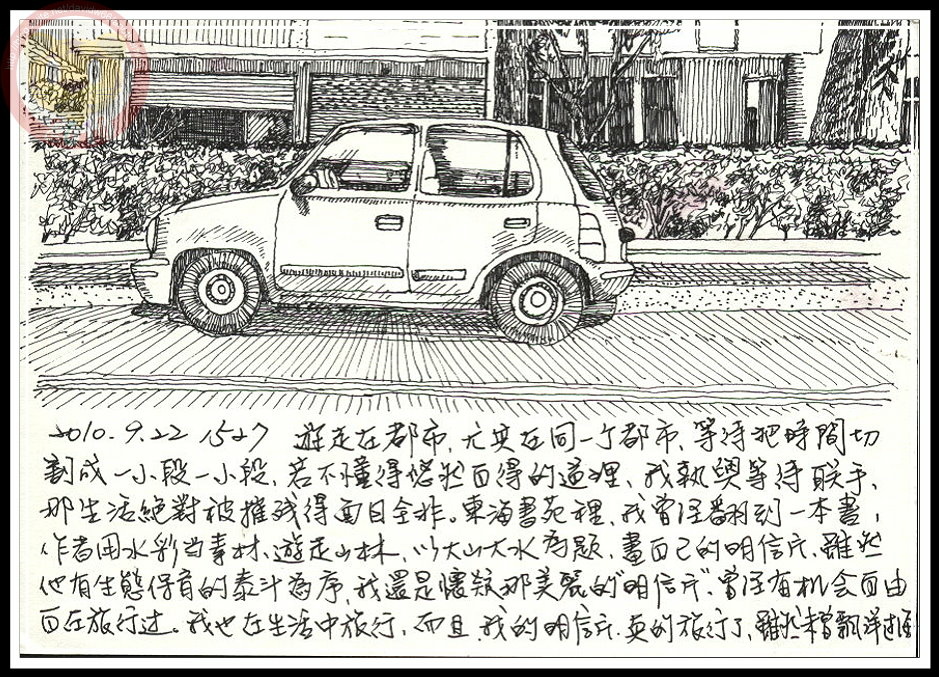 2010.9.22 1527 遊走在都市,尤其在同一个都市,等待把時間切
割成一小段一小段,若不懂得悠然自得的道理,我執與等待联手,
那生活絕對被摧残得面目全非。東海書苑裡,我曾經翻到一本書,
作者用水彩当素材,遊走山林,以大山大水為題,畫自己的明信片,雖然
他有生態保育的泰斗為序,我還是懷疑那美麗的"明信片",曾經有机会自由
自在旅行过。我也在生活中旅行,而且,我的明信片,真的旅行了,雖然未曾飄洋過海